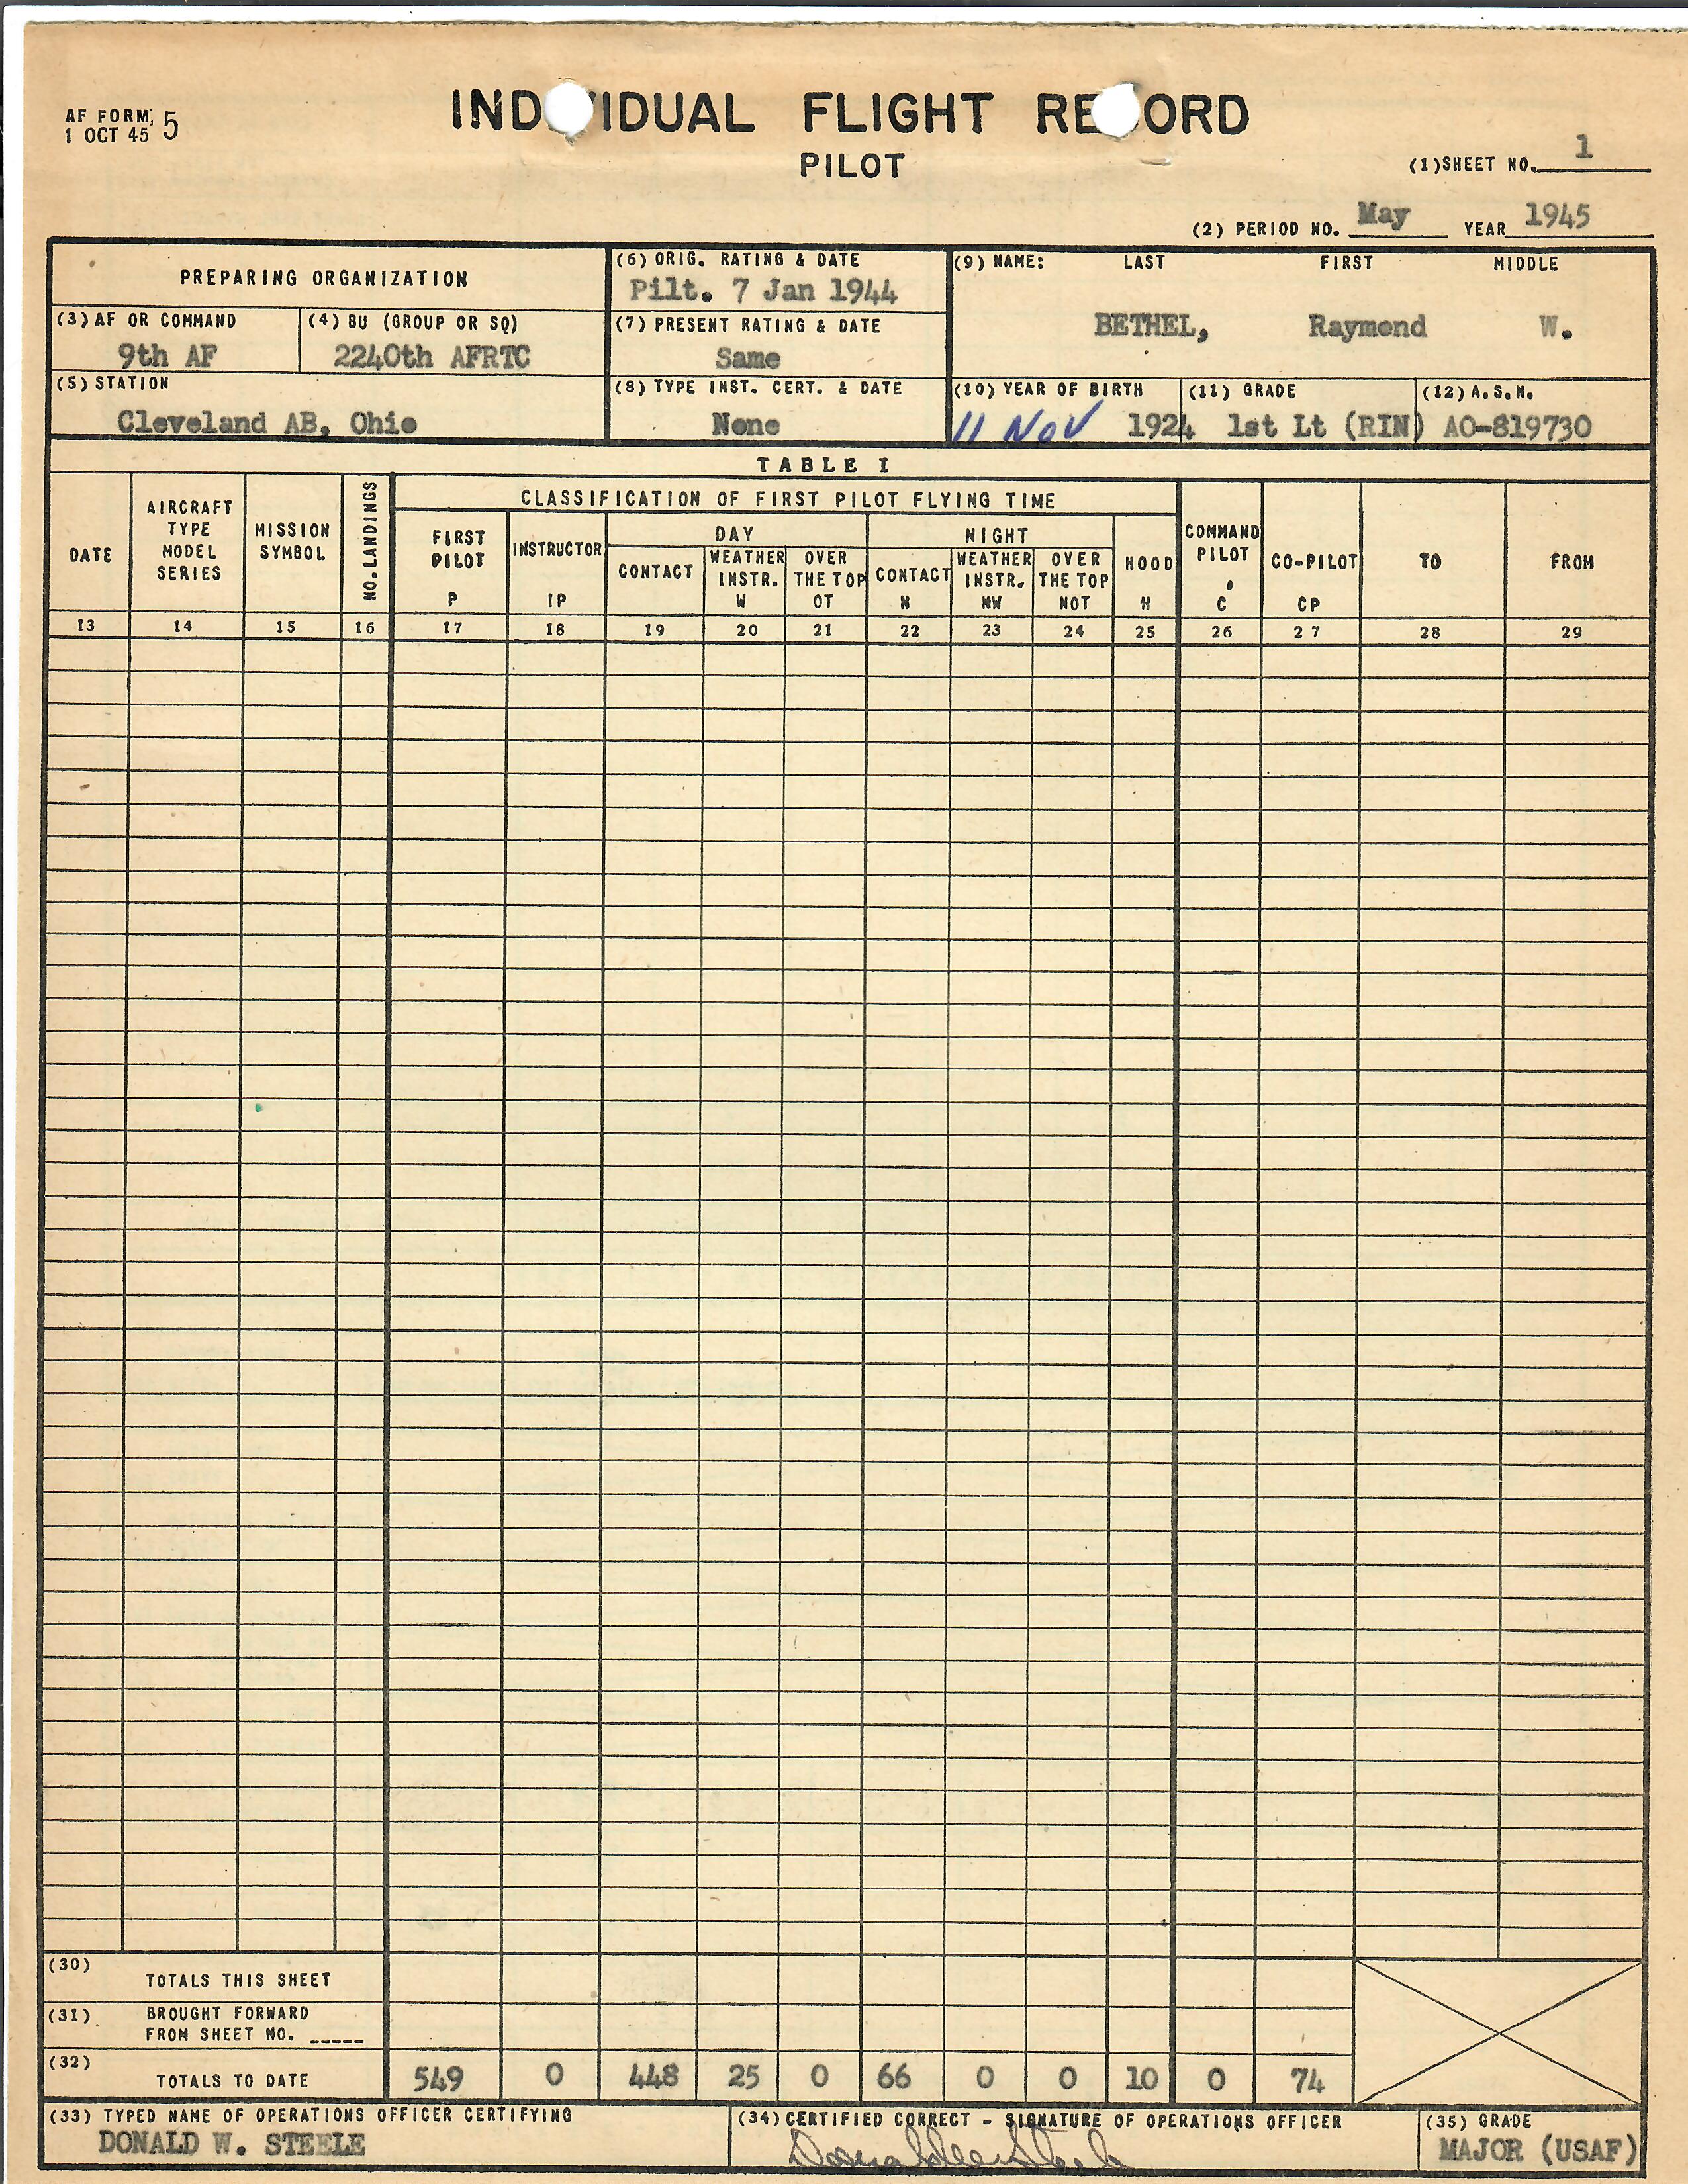 AF FORM 5
1 OCT 45
IND IDUAL FLIGHT RE ORD
PILOT
(1) SHEET NO. 1
(2) PERIOD NO. May YEAR 1945
PREPARING ORGANIZATION
(3) AF OR COMMAND
9th AF
(4) BU (GROUP OR SQ)
2240th AFRTC
(5) STATION
Cleveland AB, Ohio
(6) ORIG. RATING & DATE
Pilt. 7 Jan 1944
(7) PRESENT RATING & DATE
Same
(8) TYPE INST. CERT. & DATE
None
(9) NAME: LAST FIRST MIDDLE
BETHEL, Raymond W.
(10) YEAR OF BIRTH (11) GRADE (12) A.S.N.
11 NOV 1924 1st Lt (RIN) AO-819730
TABLE I
DATE
AIRCRAFT
TYPE
MODEL
SERIES
MISSION
SYMBOL
NO. LANDINGS
CLASSIFICATION OF FIRST PILOT FLYING TIME
FIRST
PILOT
P
INSTRUCTOR
IP
DAY
CONTACT
WEATHER
INSTR.
W
OVER
THE TOP
OT
NIGHT
CONTACT
N
WEATHER
INSTR.
NW
OVER
THE TOP
NOT
HOOD
H
COMMAND
PILOT
C
CO-PILOT
CP
TO
FROM
13 14 15 16 17 18 19 20 21 22 23 24 25 26 27 28 29
(30)
TOTALS THIS SHEET
(31)
BROUGHT FORWARD
FROM SHEET NO. _____
(32)
TOTALS TO DATE 549 0 448 25 0 66 0 0 10 0 74
(33) TYPED NAME OF OPERATIONS OFFICER CERTIFYING
DONALD W. STEELE
(34) CERTIFIED CORRECT - SIGNATURE OF OPERATIONS OFFICER
(35) GRADE
MAJOR (USAF)